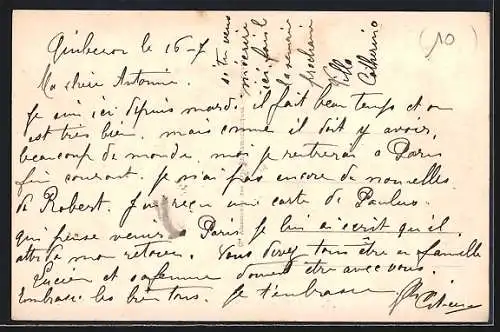 Quiberon le 16-7
Ma chère Antonine.
Je suis ici depuis mardi. il fait beau temps et on
est très bien. mais comme il doit y avoir
beaucoup de monde, moi je rentrerai à Paris
fin courant. Je n'ai pas encore de nouvelles
de Robert. J'ai reçu une carte de
qui pense venir à Paris je lui ai écrit qu'il
mon retour. Vous devez tous être en famille
Lucien et sa femme doivent être avec vous.
Embrasse les bien tous. Je t'embrasse
si tu veux
m'écrire
ici fais le
la semaine
prochaine
Villa
Catherine
(10)